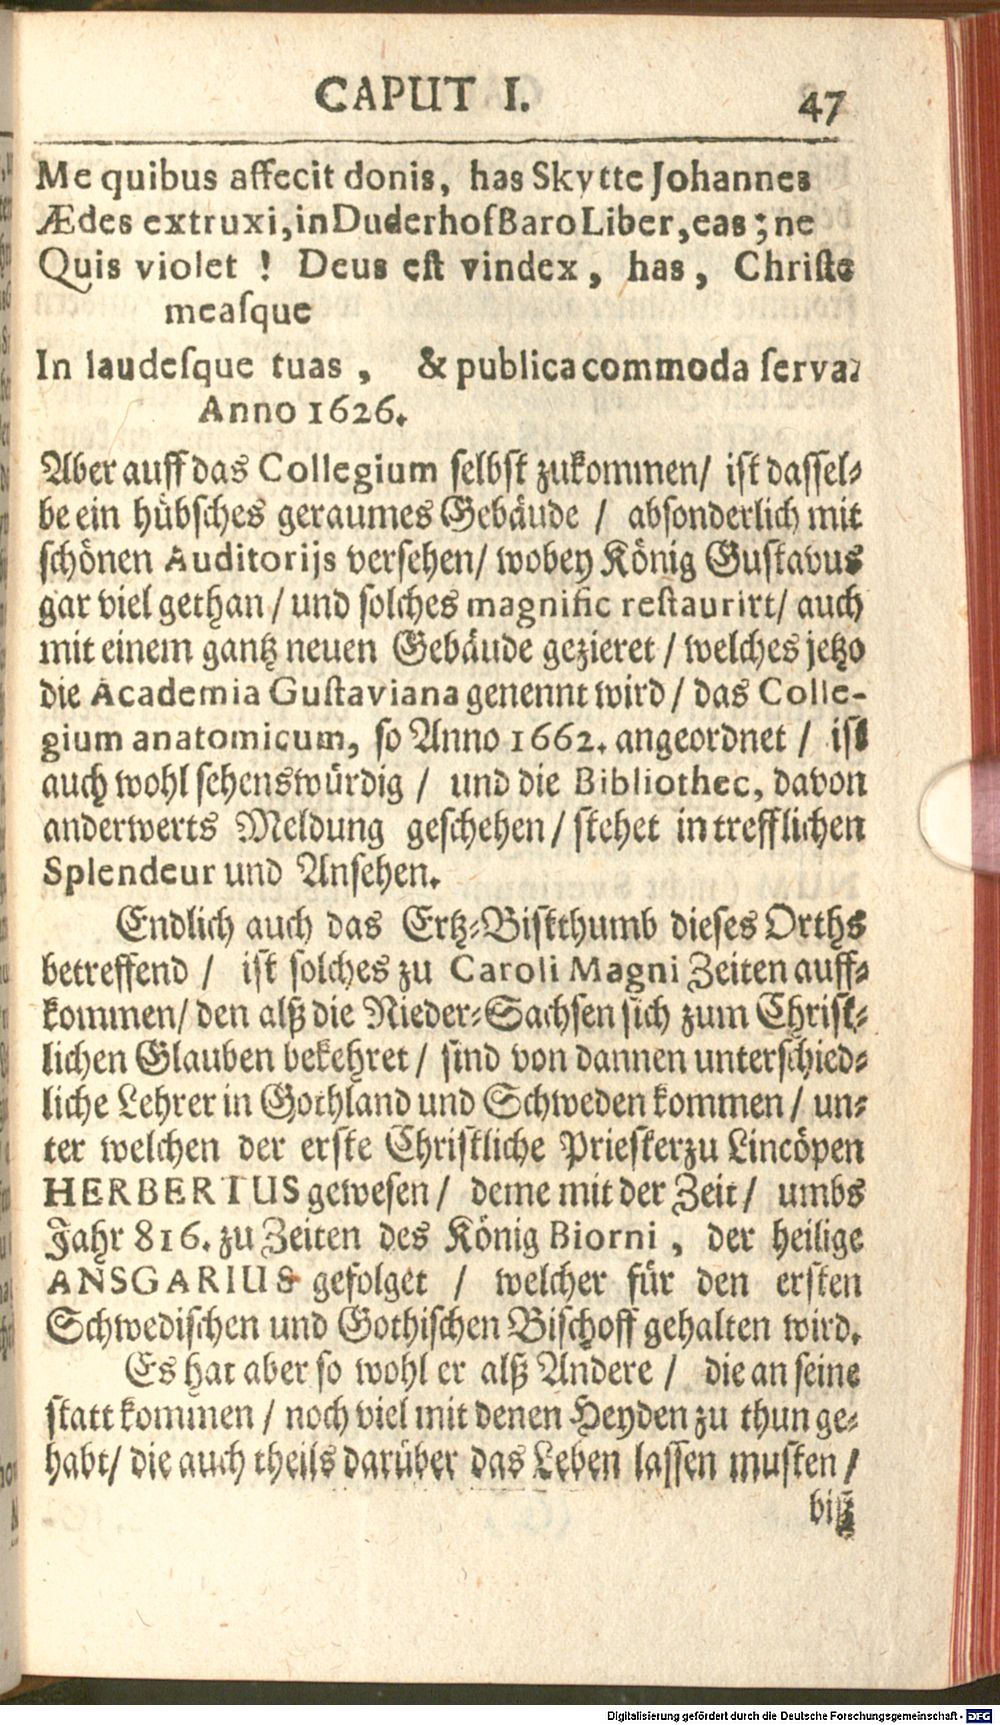 CAPUT I. 47
Me quibus affecit donis, has Skytte Johannes
Ædes extruxi, in Duderhof Baro Liber, eas; ne
Quis violet ! Deus est vindex, has, Christe
measque
In laudesque tuas, & publica commoda serva.
Anno 1626.
Aber auff das Collegium selbst zukommen/ ist dassel-
be ein hübsches geraumes Gebäude / absonderlich mit
schönen Auditorijs versehen/ wobey König Gustavus
gar viel gethan / und solches magnific restaurirt/ auch
mit einem gantz neuen Gebäude gezieret / welches jetzo
die Academia Gustaviana genennt wird / das Colle-
gium anatomicum, so Anno 1662. angeordnet / ist
auch wohl sehenswürdig / und die Bibliothec, davon
anderwerts Meldung geschehen / stehet in trefflichen
Splendeur und Ansehen.
Endlich auch das Ertz-Biskthumb dieses Orths
betreffend / ist solches zu Caroli Magni Zeiten auff-
kommen/ den alß die Nieder-Sachsen sich zum Christ-
lichen Glauben bekehret / sind von dannen unterschied-
liche Lehrer in Gothland und Schweden kommen / un-
ter welchen der erste Christliche Priester zu Lincöpen
HERBERTUS gewesen / deme mit der Zeit / umbs
Jahr 816. zu Zeiten des König Biorni, der heilige
ANSGARIUS gefolget / welcher für den ersten
Schwedischen und Gothischen Bischoff gehalten wird.
Es hat aber so wohl er alß Andere / die an seine
statt kommen / noch viel mit denen Heyden zu thun ge-
habt/ die auch theils darüber das Leben lassen musten /
biß
Digitalisierung gefördert durch die Deutsche Forschungsgemeinschaft - DFG